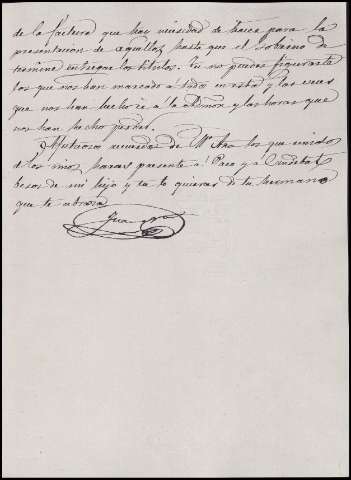 de la factura que hay necesidad de hacer para la
presentacion de aquellos hasta que el Gobierno de
termine entregar los titulos. Tu no puedes figurarte
los que nos han mareado a todos en esta y las veces
que nos han hecho ir a la reunion y las horas que
nos han hecho perder.
Afectuosos recuerdos de Mª Ana los que unidos
a los mios haras presente a Paco y a Candelas
besos de mi hijo y tu te quieras de tu hermano
que te abraza
Juan